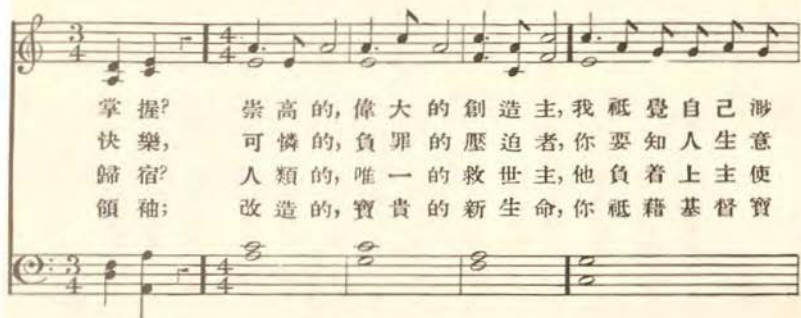 3 4 4 4
掌握? 崇高的, 偉大的創造主, 我祇覺自己渺
快樂, 可憐的, 負罪的壓迫者, 你要知人生意
歸宿? 人類的, 唯一的救世主, 他負着上主使
領袖; 改造的, 寶貴的新生命, 你祇藉基督寶
3 4 4 4